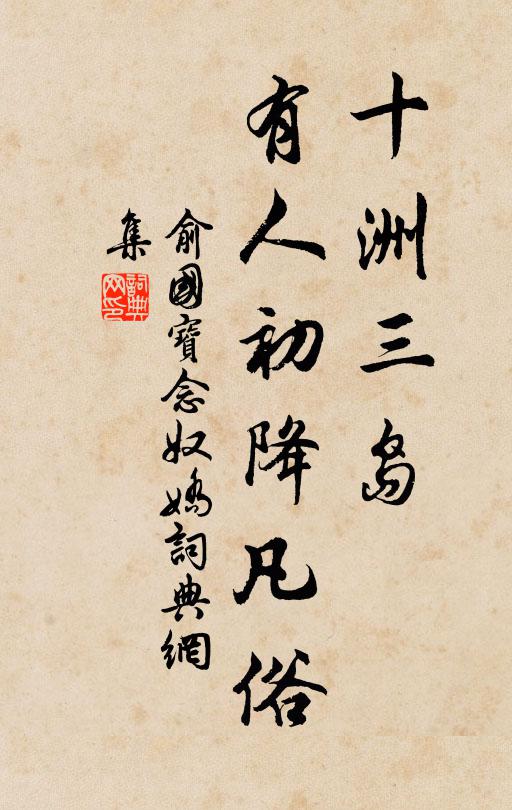 十洲三島
有人初降凡俗
俞國寶念奴嬌詞典網
集
詞典
网印